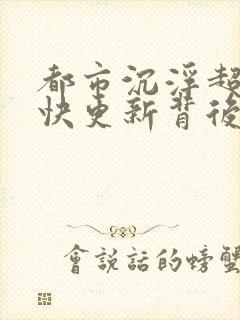 都市沉浮超
快更新背後
會説話的螃蟹